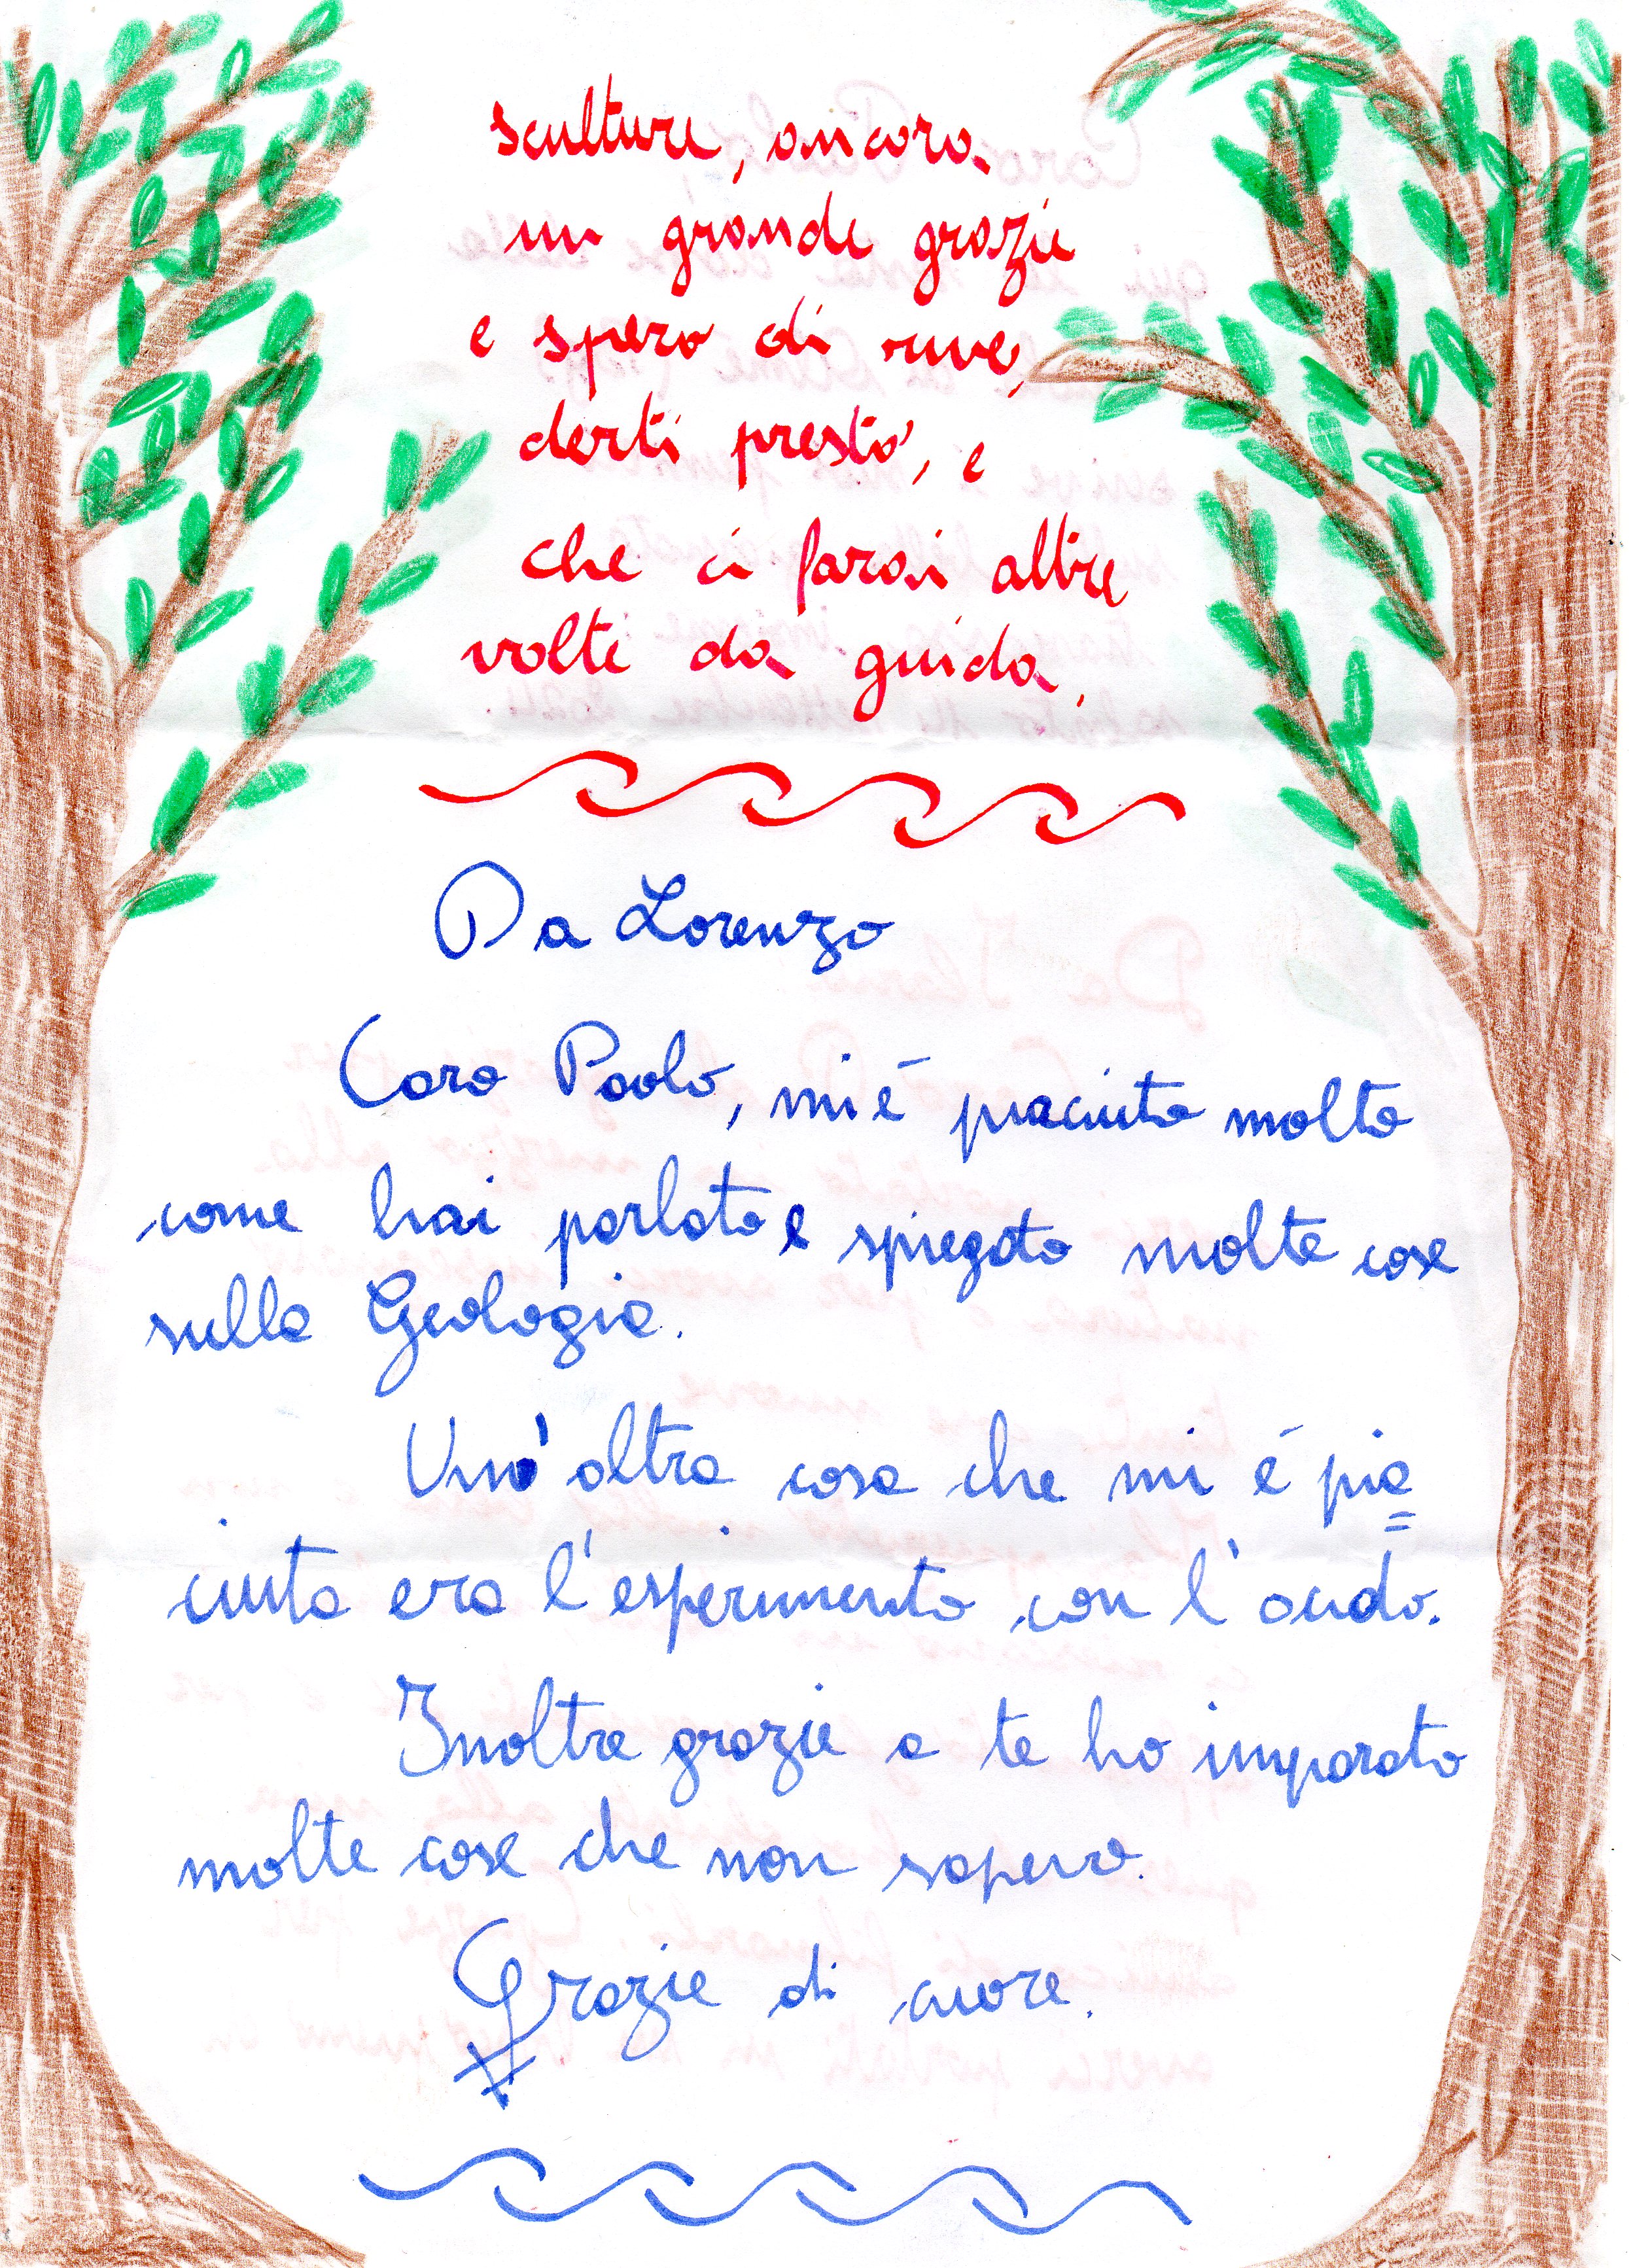 sculture, ancora
un grande grazie
e spero di rive,
derti presto, e
che ci farai altre
volte da guida.
Da Lorenzo
Caro Paolo, mi é piaciuto molto
come hai parlato e spiegato molte cose
sulla Geologia.
Un'altra cosa che mi é pia
ciuta era l'esperimento con l'acido.
Inoltre grazie a te ho imparato
molte cose che non sapevo.
Grazie di cuore.